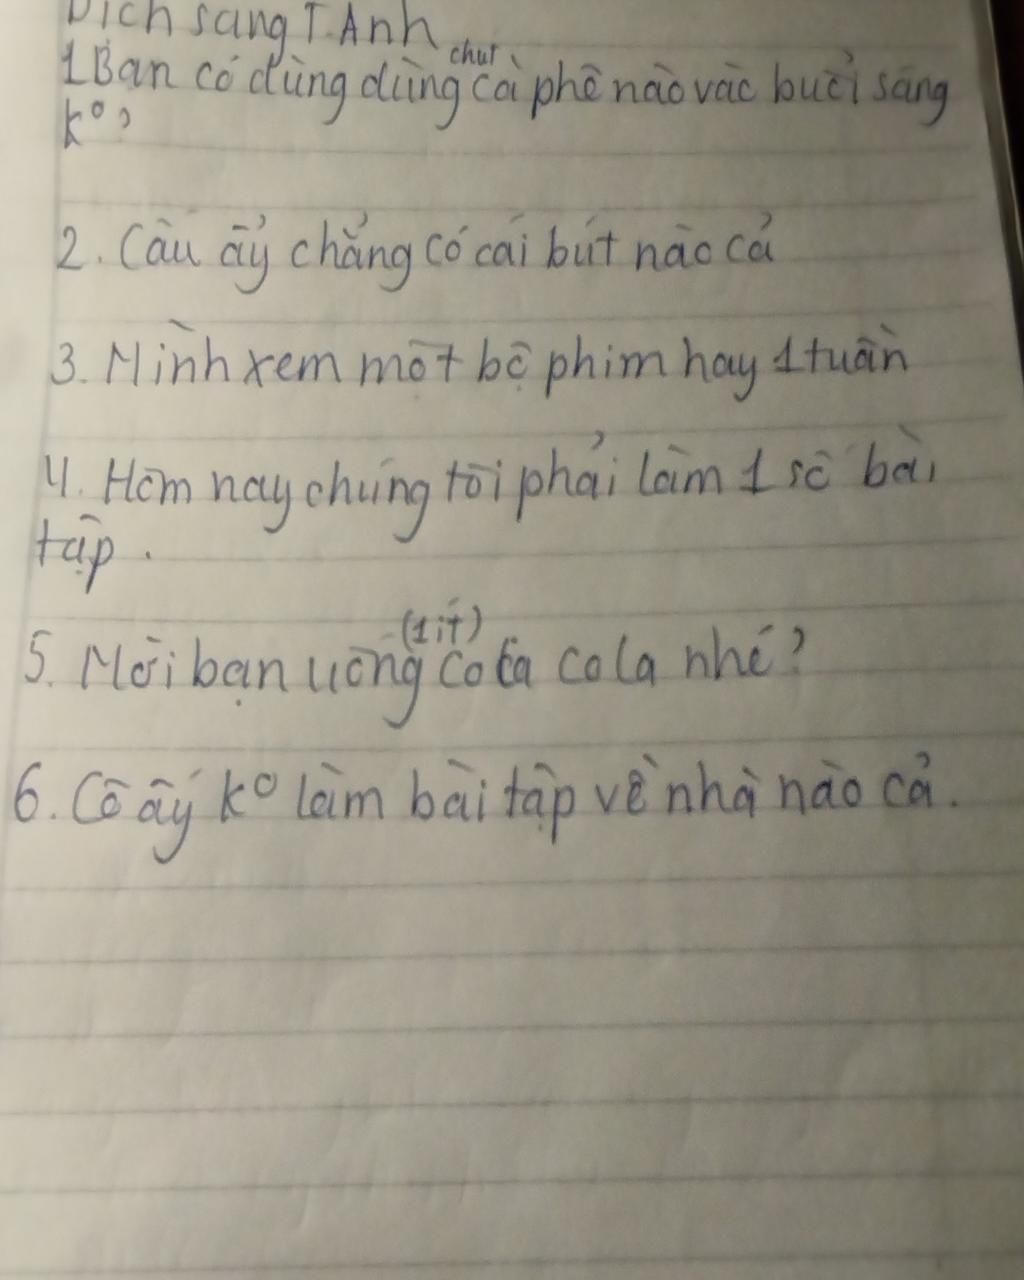 Dịch sang T.Anh
chút
1 Bạn có dùng dùng cà phê nào vào buổi sáng
k°?
2. Cậu ấy chẳng có cái bút nào cả
3. Mình xem một bộ phim hay 1 tuần
4. Hôm nay chúng tôi phải làm 1 số bài
tập.
(1 ít)
5. Mời bạn uống coca cola nhé?
6. Cô ấy k° làm bài tập về nhà nào cả.